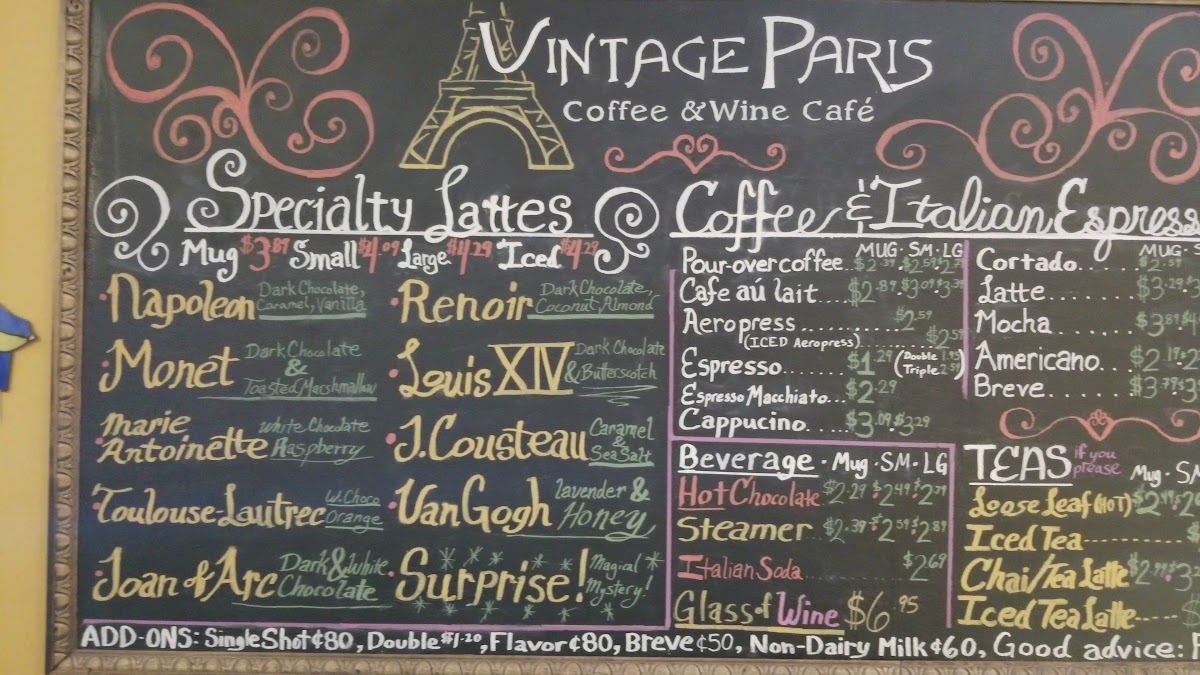 VINTAGE PARIS
Coffee & Wine Café
Specialty Lattes
Mug $3.89 Small $4.09 Large $4.29 Iced $4.29
Napoleon Dark Chocolate, Caramel, Vanilla
Monet Dark Chocolate & Toasted Marshmallow
Marie Antoinette White Chocolate Raspberry
Toulouse-Lautrec W. Choco Orange
Joan of Arc Dark & White Chocolate
Renoir Dark Chocolate, Coconut, Almond
Louis XIV Dark Chocolate & Butterscotch
J. Cousteau Caramel & Sea Salt
Van Gogh lavender & Honey
Surprise! Magical Mystery!
Coffee & Italian Espress
MUG · SM · LG
Pour-over coffee.. $2.39 $2.59 $2.79
Cafe aú lait.... $2.89 $3.09 $3.39
Aeropress .......... $2.59
(ICED Aeropress) $2.59
Espresso....... $1.29 (Double 1.95 Triple 2.59)
Espresso Macchiato... $2.29
Cappucino.... $3.09 $3.29
MUG · S
Cortado... $2.59
Latte........ $3.29
Mocha ....... $3.89
Americano... $2.19
Breve........ $3.79
Beverage · Mug · SM · LG
Hot Chocolate $2.29 $2.49 $2.79
Steamer $2.39 $2.59 $2.89
Italian Soda $2.69
Glass of Wine $6.95
TEAS if you please Mug · SM
Loose Leaf (HOT) $2.49
Iced Tea
Chai/Tea Latte $2.79
Iced Tea Latte
ADD-ONS: Single Shot ¢80, Double $1.20, Flavor ¢80, Breve ¢50, Non-Dairy Milk ¢60, Good advice: